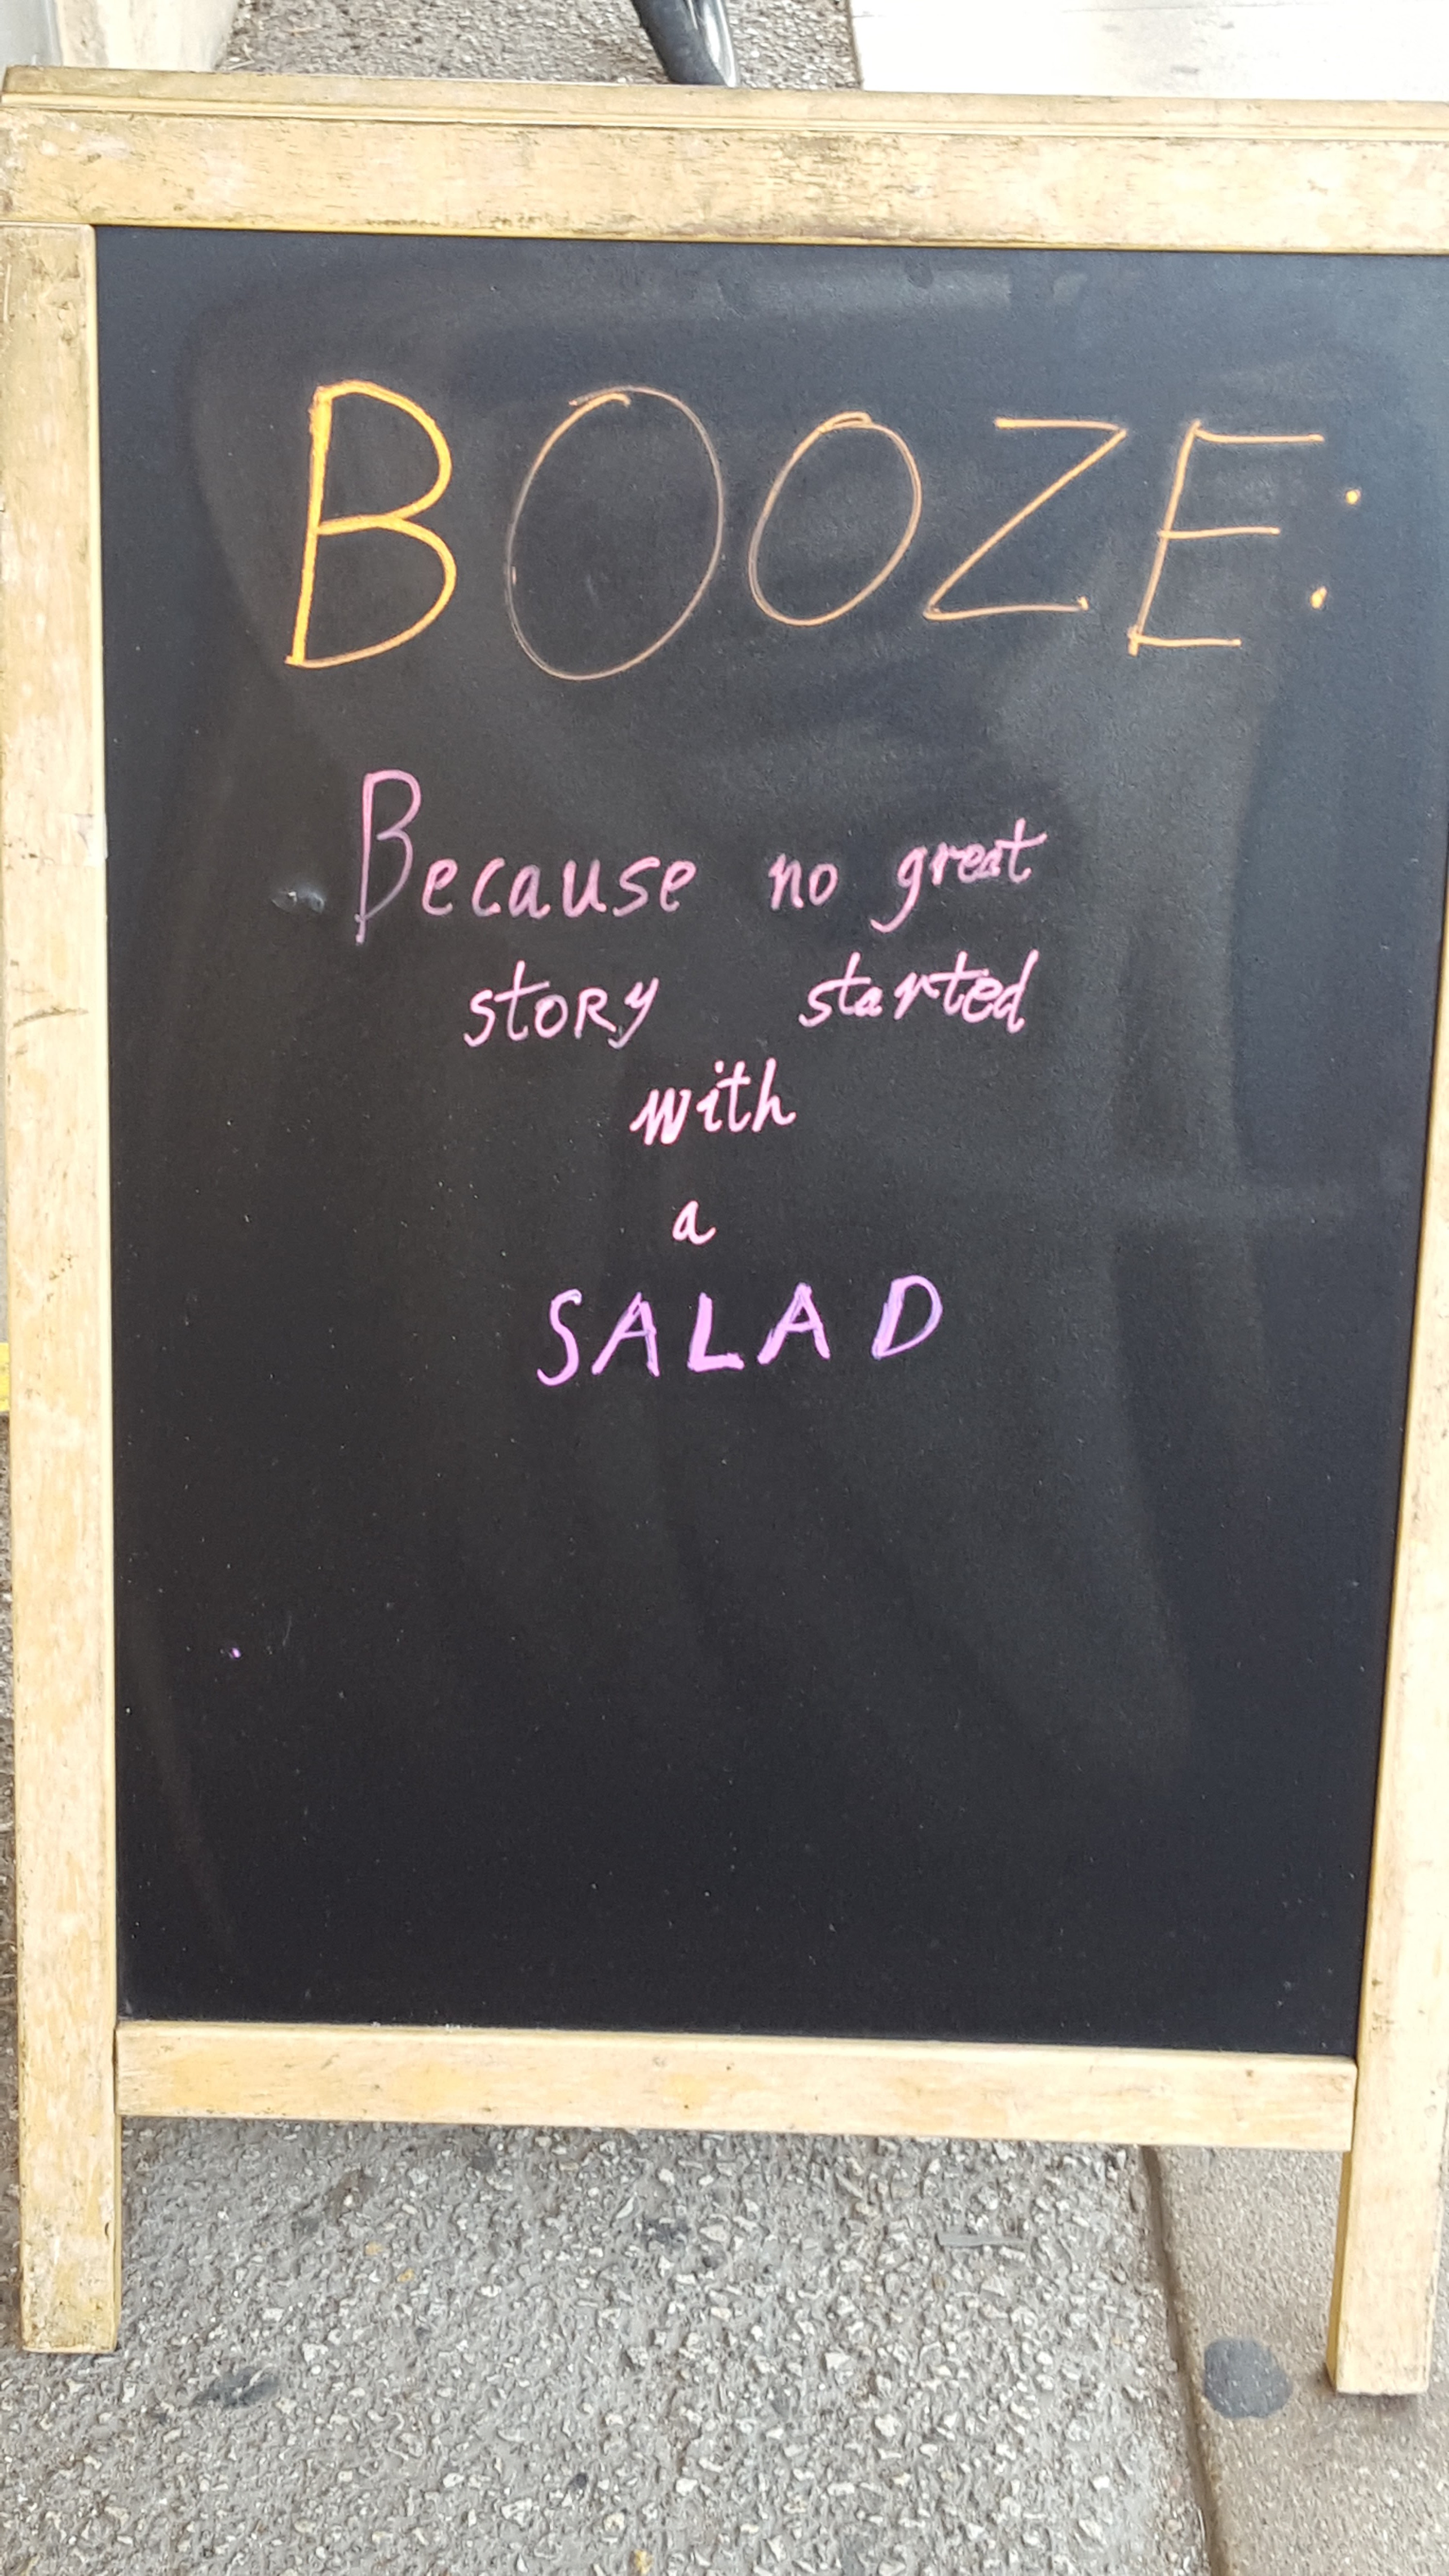 BOOZE:
Because no great
story started
with
a
SALAD